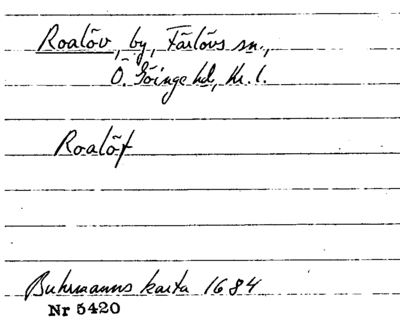 Roalöv, by, Färlövs sn.,
Ö. Göinge hd, Kr. l.
Roalöf
Buhrmanns karta 1684
Nr 5420